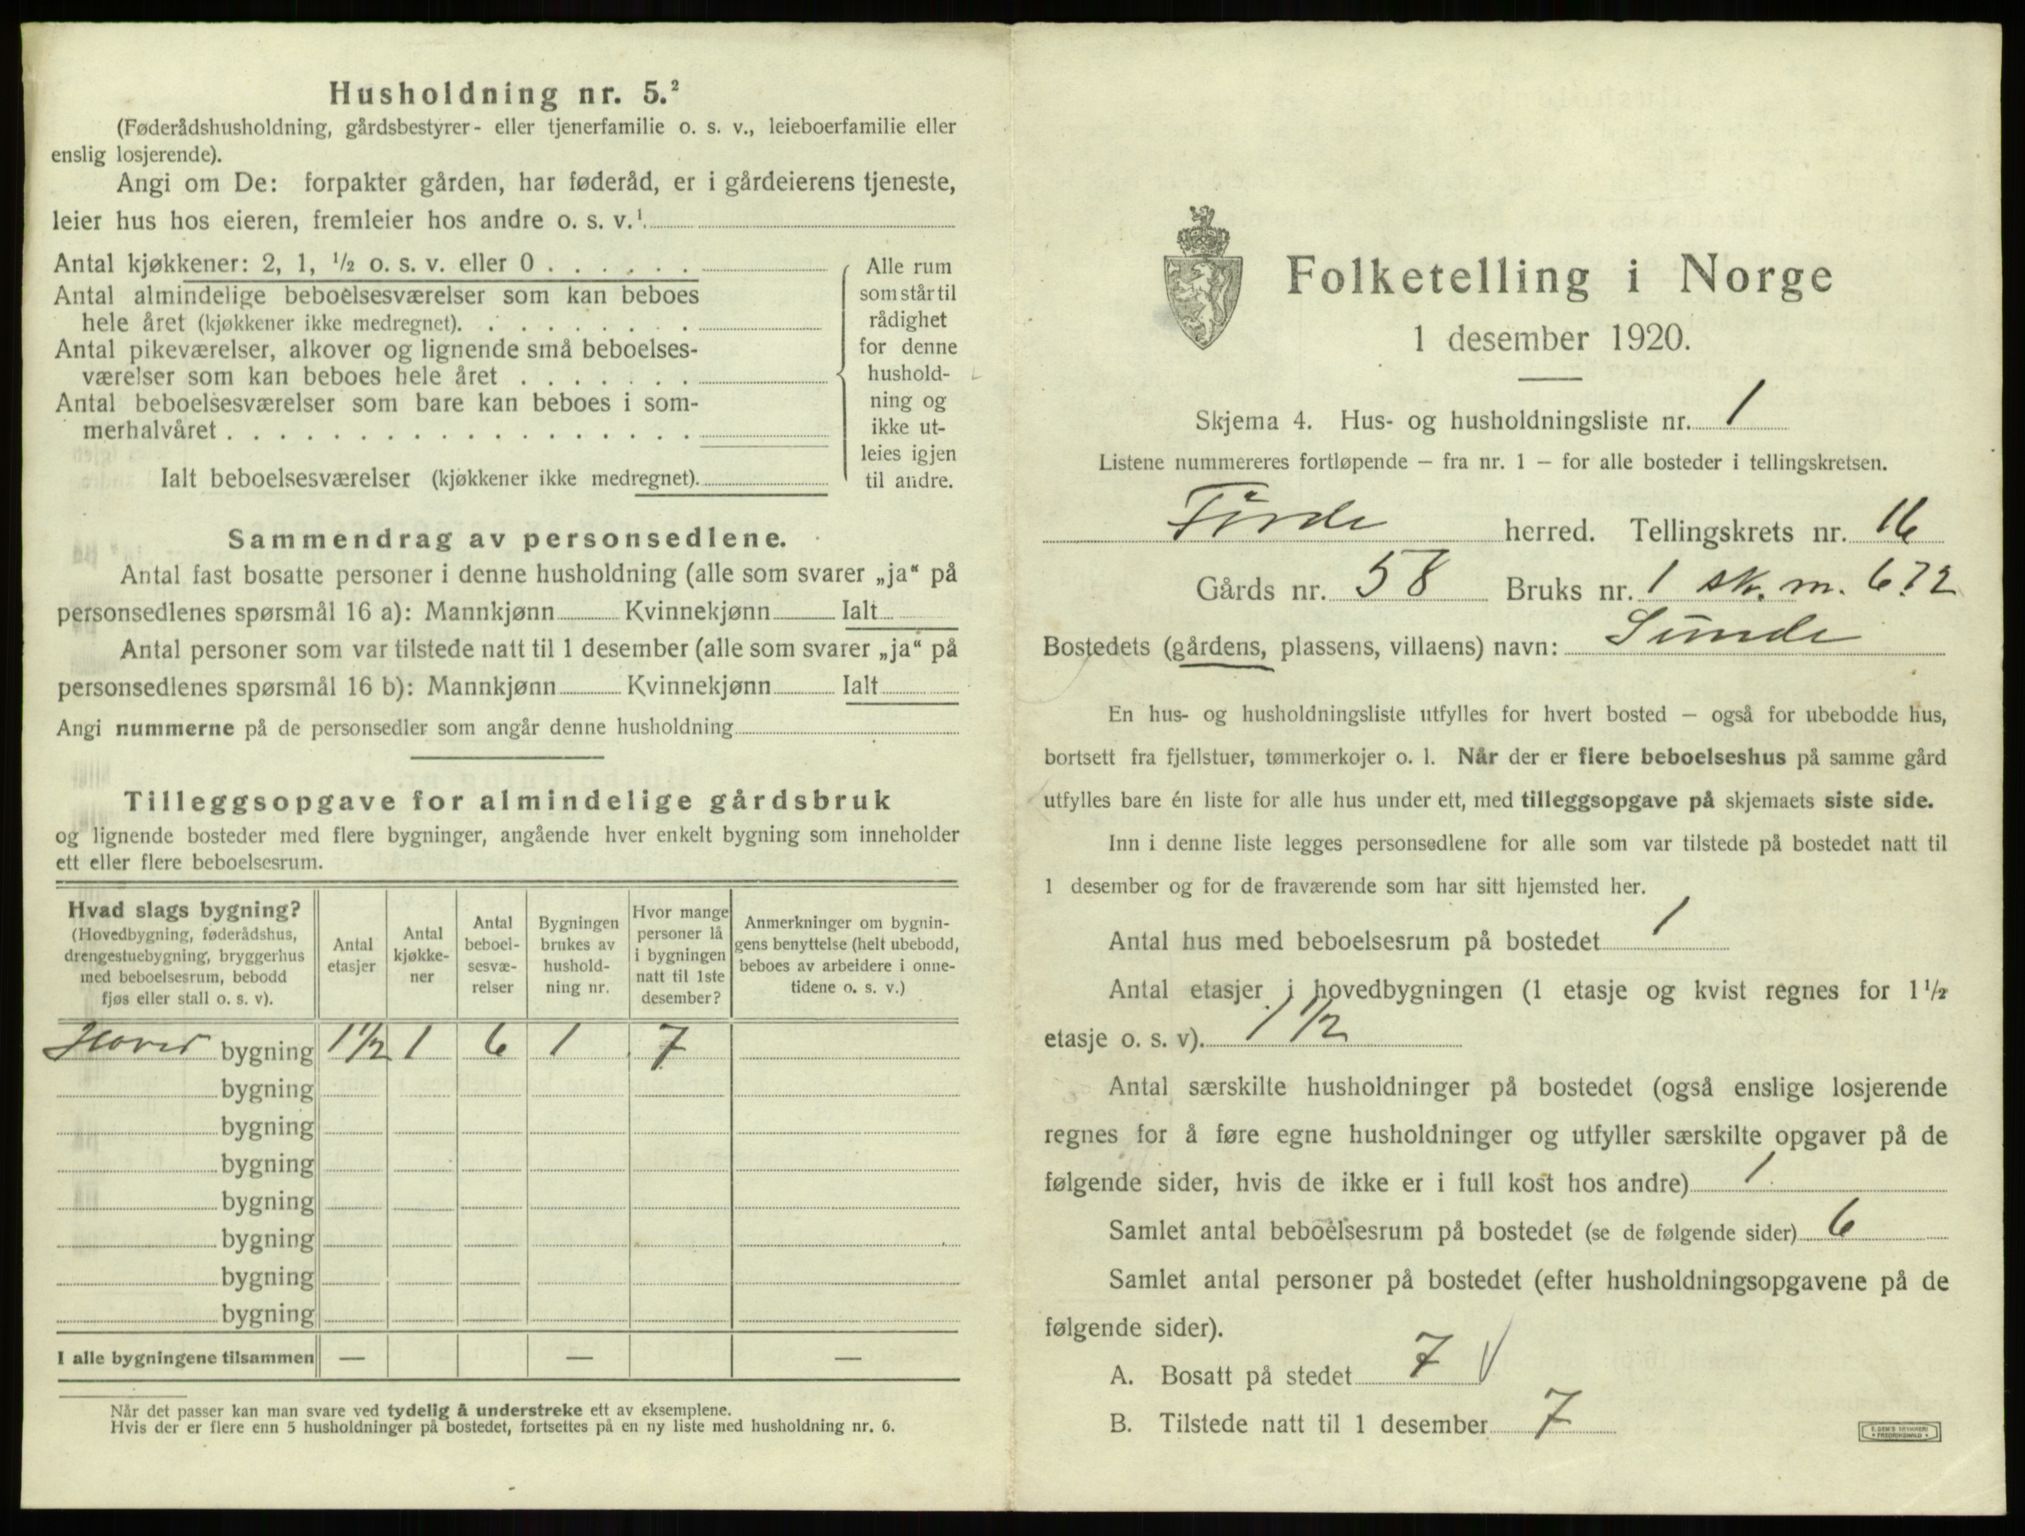 Husholdning nr. 5.²
(Føderådshusholdning, gårdsbestyrer- eller tjenerfamilie o. s. v., leieboerfamilie eller
enslig losjerende).
Angi om De: forpakter gården, har føderåd, er i gårdeierens tjeneste,
leier hus hos eieren, fremleier hos andre o. s. v.¹
Antal kjøkkener: 2, 1, ½ o. s. v. eller 0 . . . . . .
Antal almindelige beboelsesværelser som kan beboes
hele året (kjøkkener ikke medregnet). . . . . . . . .
Antal pikeværelser, alkover og lignende små beboelses-
værelser som kan beboes hele året . . . . . . .
Antal beboelsesværelser som bare kan beboes i som-
merhalvåret . . . . . . . . . . . . . . . . . .
Ialt beboelsesværelser (kjøkkener ikke medregnet).
Alle rum
som står til
rådighet
for denne
hushold-
ning og
ikke ut-
leies igjen
til andre.
Sammendrag av personsedlene.
Antal fast bosatte personer i denne husholdning (alle som svarer „ja“ på
personsedlenes spørsmål 16 a): Mannkjønn Kvinnekjønn Ialt
Antal personer som var tilstede natt til 1 desember (alle som svarer „ja“ på
personsedlenes spørsmål 16 b): Mannkjønn Kvinnekjønn Ialt
Angi nummerne på de personsedler som angår denne husholdning
Tilleggsopgave for almindelige gårdsbruk
og lignende bosteder med flere bygninger, angående hver enkelt bygning som inneholder
ett eller flere beboelsesrum.
Hvad slags bygning?
(Hovedbygning, føderådshus,
drengestuebygning, bryggerhus
med beboelsesrum, bebodd
fjøs eller stall o. s. v).
Antal
etasjer
Antal
kjøkke-
ner
Antal
beboel-
sesvæ-
relser
Bygningen
brukes av
hushold-
ning nr.
Hvor mange
personer lå
i bygningen
natt til 1ste
desember?
Anmerkninger om bygnin-
gens benyttelse (helt ubebodd,
beboes av arbeidere i onne-
tidene o. s. v.)
Hoved bygning 1½ 1 6 1 7
bygning
bygning
bygning
bygning
bygning
bygning
bygning
I alle bygningene tilsammen — — —
Når det passer kan man svare ved tydelig å understreke ett av eksemplene.
Hvis der er flere enn 5 husholdninger på bostedet, fortsettes på en ny liste med husholdning nr. 6.
Folketelling i Norge
1 desember 1920.
Skjema 4. Hus- og husholdningsliste nr. 1
Listene nummereres fortløpende – fra nr. 1 – for alle bosteder i tellingskretsen.
Førde herred. Tellingskrets nr. 16
Gårds nr. 58 Bruks nr. 1 sk. m. 672
Bostedets (gårdens, plassens, villaens) navn: Sunde
En hus- og husholdningsliste utfylles for hvert bosted – også for ubebodde hus,
bortsett fra fjellstuer, tømmerkojer o. l. Når der er flere beboelseshus på samme gård
utfylles bare én liste for alle hus under ett, med tilleggsopgave på skjemaets siste side.
Inn i denne liste legges personsedlene for alle som var tilstede på bostedet natt til
1 desember og for de fraværende som har sitt hjemsted her.
Antal hus med beboelsesrum på bostedet 1
Antal etasjer i hovedbygningen (1 etasje og kvist regnes for 1½
etasje o. s. v). 1½
Antal særskilte husholdninger på bostedet (også enslige losjerende
regnes for å føre egne husholdninger og utfyller særskilte opgaver på de
følgende sider, hvis de ikke er i full kost hos andre) 1
Samlet antal beboelsesrum på bostedet (se de følgende sider) 6
Samlet antal personer på bostedet (efter husholdningsopgavene på de
følgende sider).
A. Bosatt på stedet 7 V
B. Tilstede natt til 1 desember 7